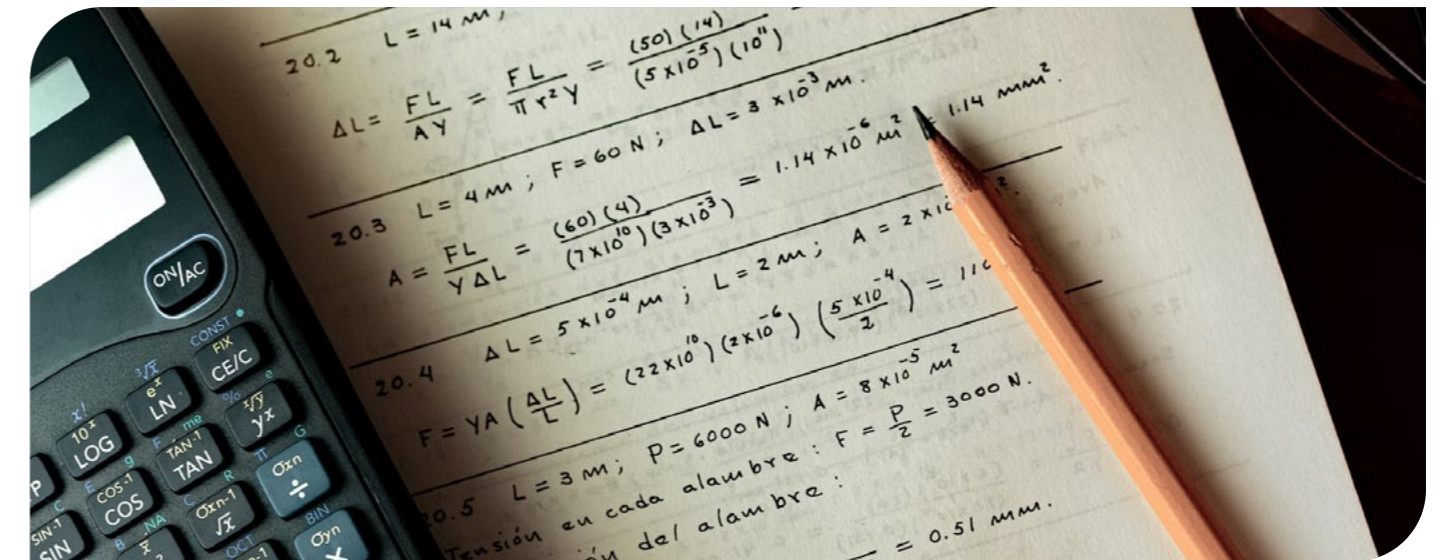 20.2 L = 14 m,
ΔL = FL/AY = FL/πr²Y = (50)(14)/(5×10⁻⁵)(10¹¹)
20.3 L = 4 m ; F = 60 N ; ΔL = 3 ×10⁻³ m.
A = FL/YΔL = (60)(4)/(7×10¹⁰)(3×10⁻³) = 1.14 ×10⁻⁶ m² = 1.14 mm².
20.4 ΔL = 5 ×10⁻⁴ m ; L = 2 m ; A = 2 ×10
F = YA (ΔL/L) = (22×10¹⁰)(2×10⁻⁶) (5 ×10⁻⁴/2) = 110
20.5 L = 3 m ; P = 6000 N ; A = 8 ×10⁻⁵ m²
Tensión en cada alambre : F = P/2 = 3000 N.
del alambre :
= 0.51 mm.
ON/AC
CONST
FIX
CE/C
³√x
eˣ
LN
% e
ˣ√y
yˣ
x!
10ˣ
LOG
F me
TAN⁻¹
TAN
π G
σxn
÷
P
E g
COS⁻¹
COS
C R
σxn-1
√x̄
BIN
σyn
×
C
SIN⁻¹
SIN
B NA
x̄
OCT